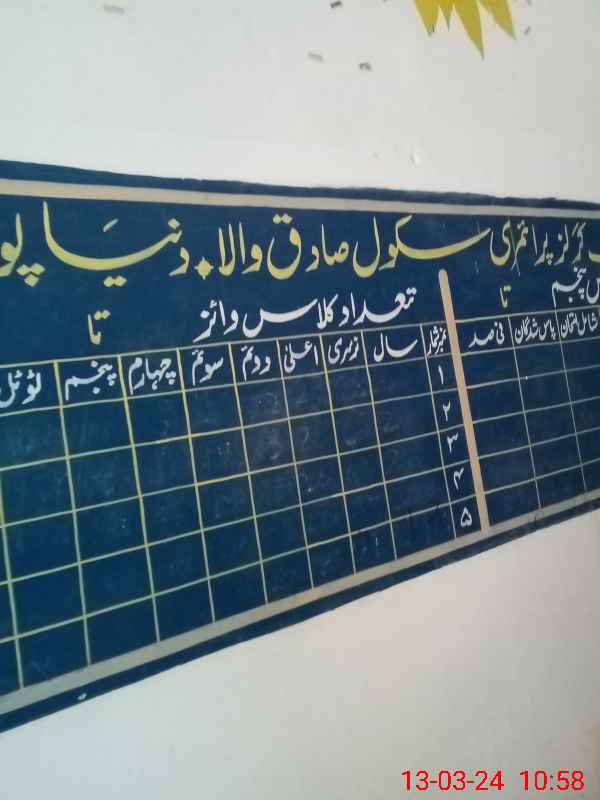 گرلز پرائمری سکول صادق والا دنیا پو
پنجم تا تعداد کلاس وائز تا
شامل امتحان پاس شدگان فی صد نمبر شمار سال نرسری اعلیٰ دوئم سوئم چہارم پنجم ٹوٹل
۱
۲
۳
۴
۵
13-03-24 10:58